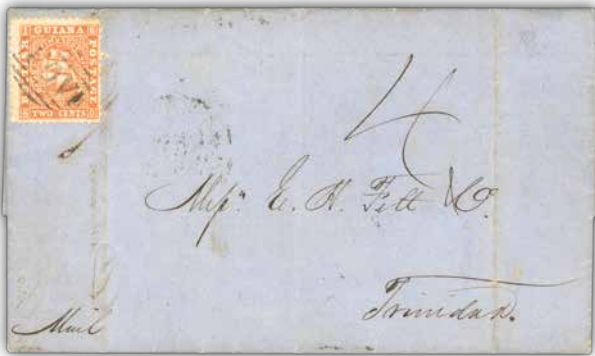 BRITISH GUIANA POSTAGE
TWO CENTS
4
Mess. E. H. Fitt & Co.
Trinidad.
Mail